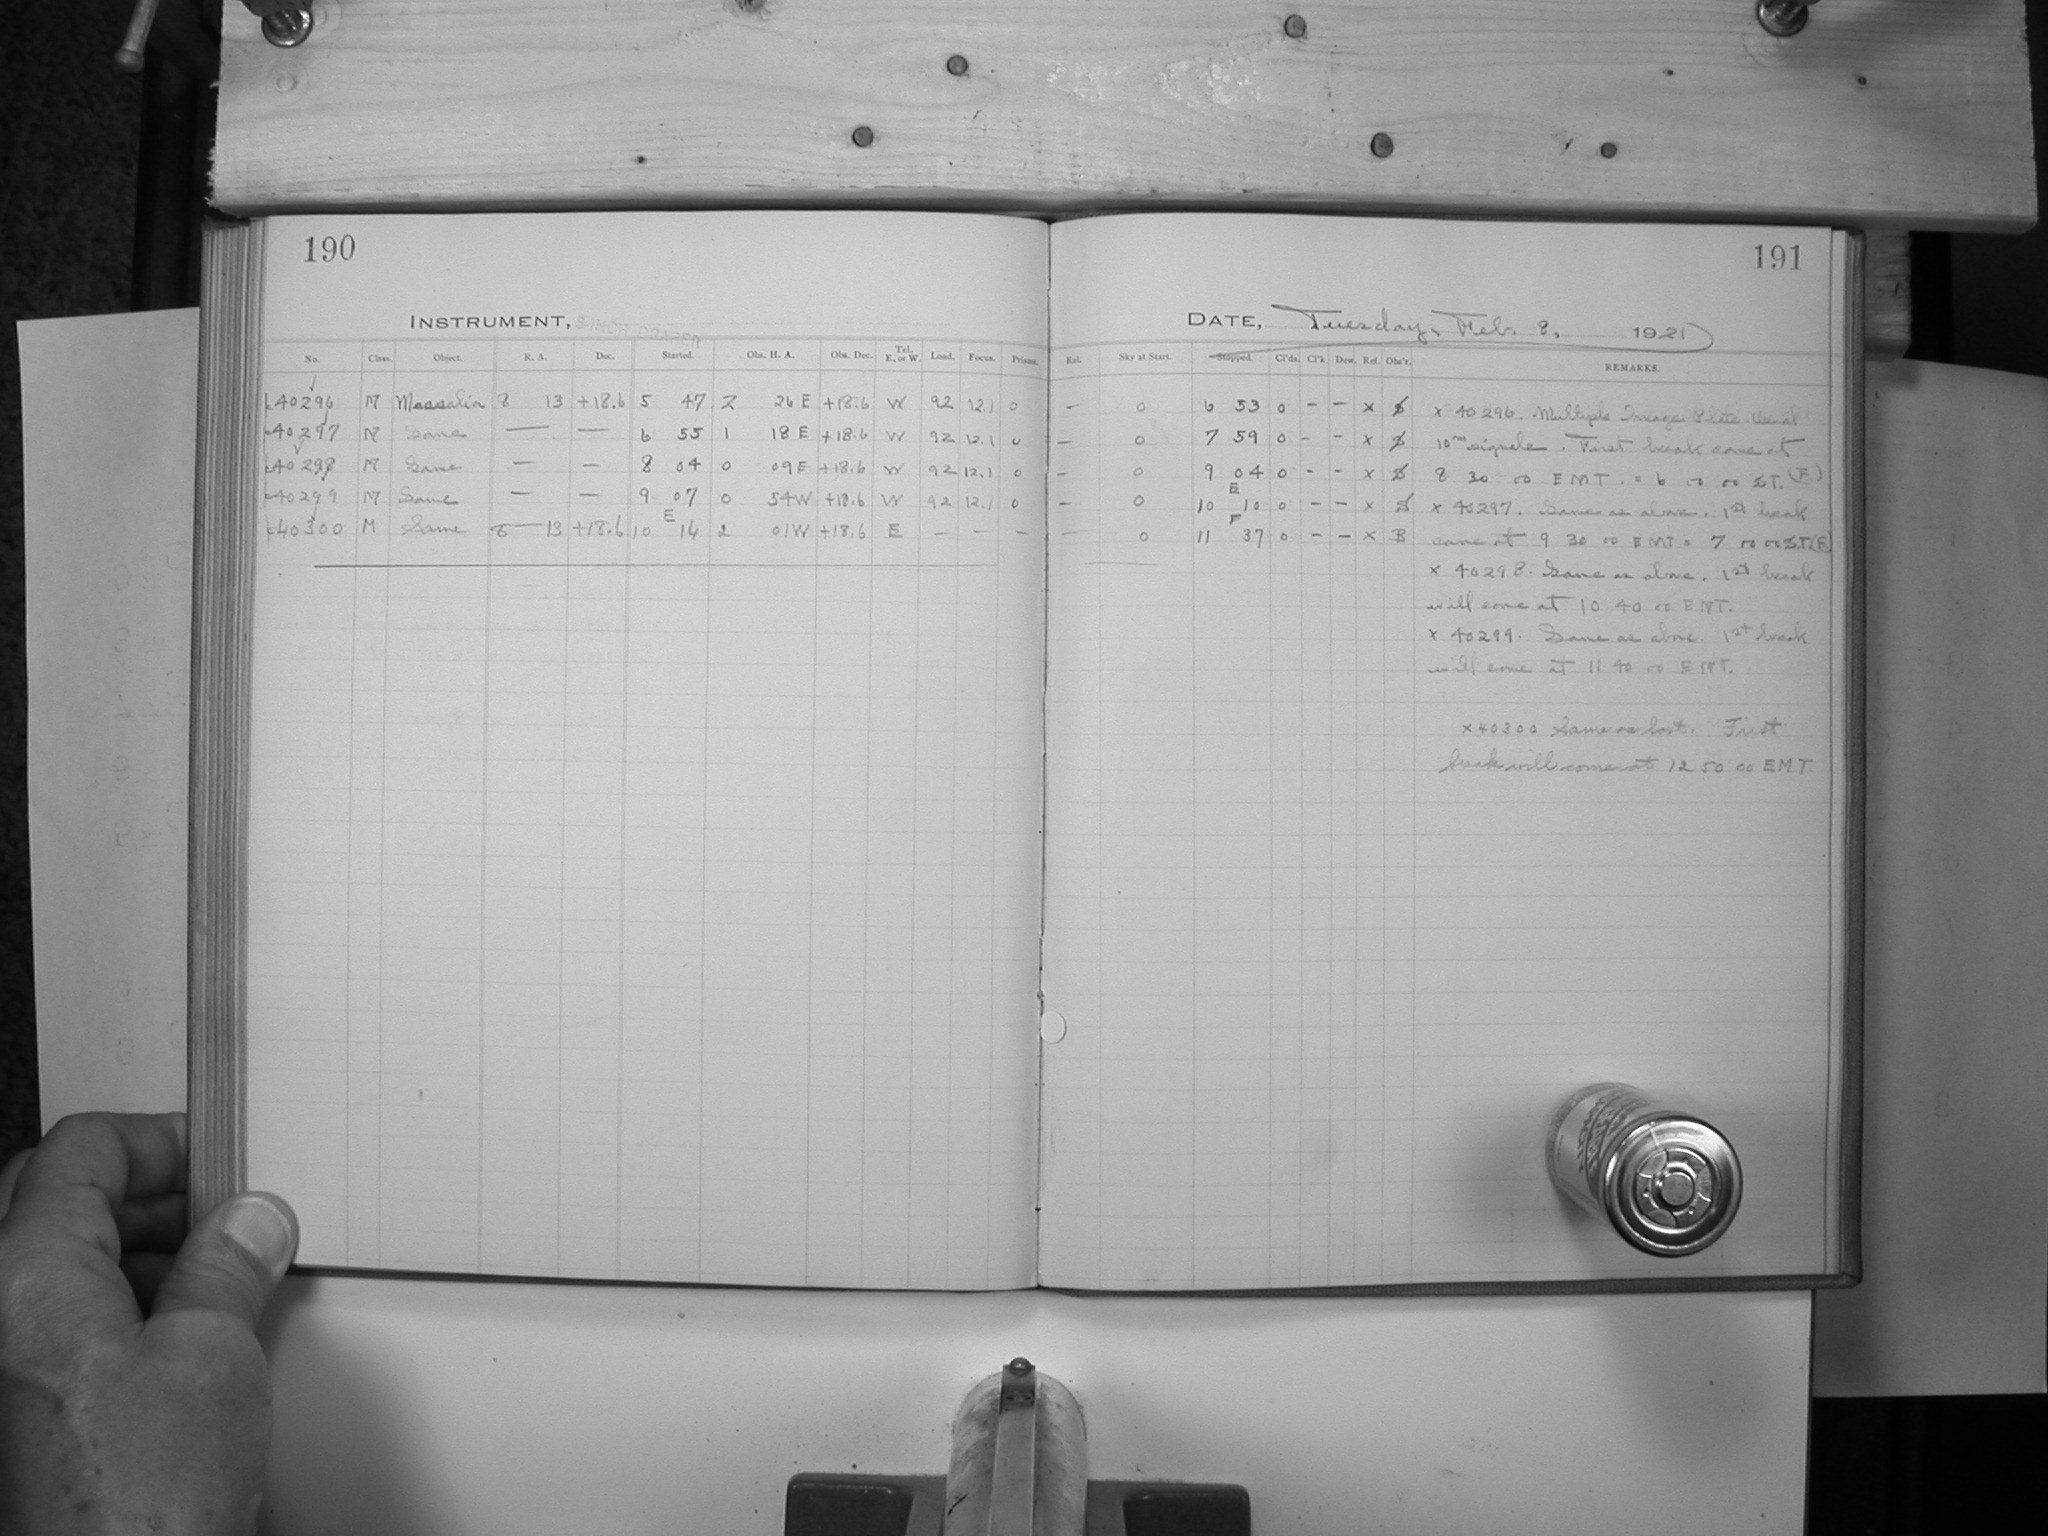 190
191
INSTRUMENT, 8-INCH DRAPER
DATE, Tuesday, Feb. 8, 1921
No. Class. Object. R. A. Dec. Started. Obs. H. A. Obs. Dec. Tel. E. or W. Load. Focus. Prisms.
Exl. Sky at Start. Stopped. Cl'ds. Cl'k Dew. Ref. Obs'r. REMARKS.
40296 M Massalia 8 13 +18.6 5 47 2 26 E +18.6 W 92 12.1 0 — 0 6 53 0 — — x
40297 M Same — — 6 55 1 18 E +18.6 W 92 12.1 0 — 0 7 59 0 — — x
40298 M Same — — 8 04 0 09 E +18.6 W 92 12.1 0 — 0 9 04 0 — — x
40299 M Same — — 9 07 0 54 W +18.6 W 92 12.1 0 — 0 10 E 10 0 — — x
40300 M Same 8 13 +18.6 10 E 14 2 01 W +18.6 E — — — — 0 11 F 37 0 — — x B
x 40296. Multiple Image Plate. Usual
10m signals. First break came at
8 30 00 EMT. = 6 00 ST. (F)
x 40297. Same as above. 1st break
came at 9 30 00 EMT = 7 00 00 S.T. (F)
x 40298. Same as above. 1st break
will come at 10 40 00 EMT.
x 40299. Same as above. 1st break
will come at 11 40 00 EMT.
x 40300 Same as last. First
break will come at 12 50 00 EMT